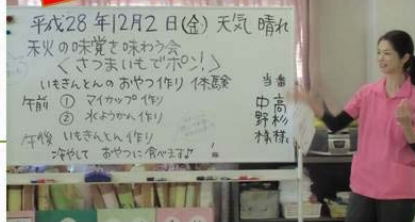 平成28年12月2日(金) 天気 晴れ
秋の味覚を味わう会
<さつまいもでポン!>
いもきんとんのおやつ作り 体験
午前 ① マイカップ作り
② 水ようかん作り
午後 いもきんとん作り
冷やして おやつに食べます♪
当番
中野様
高杉様